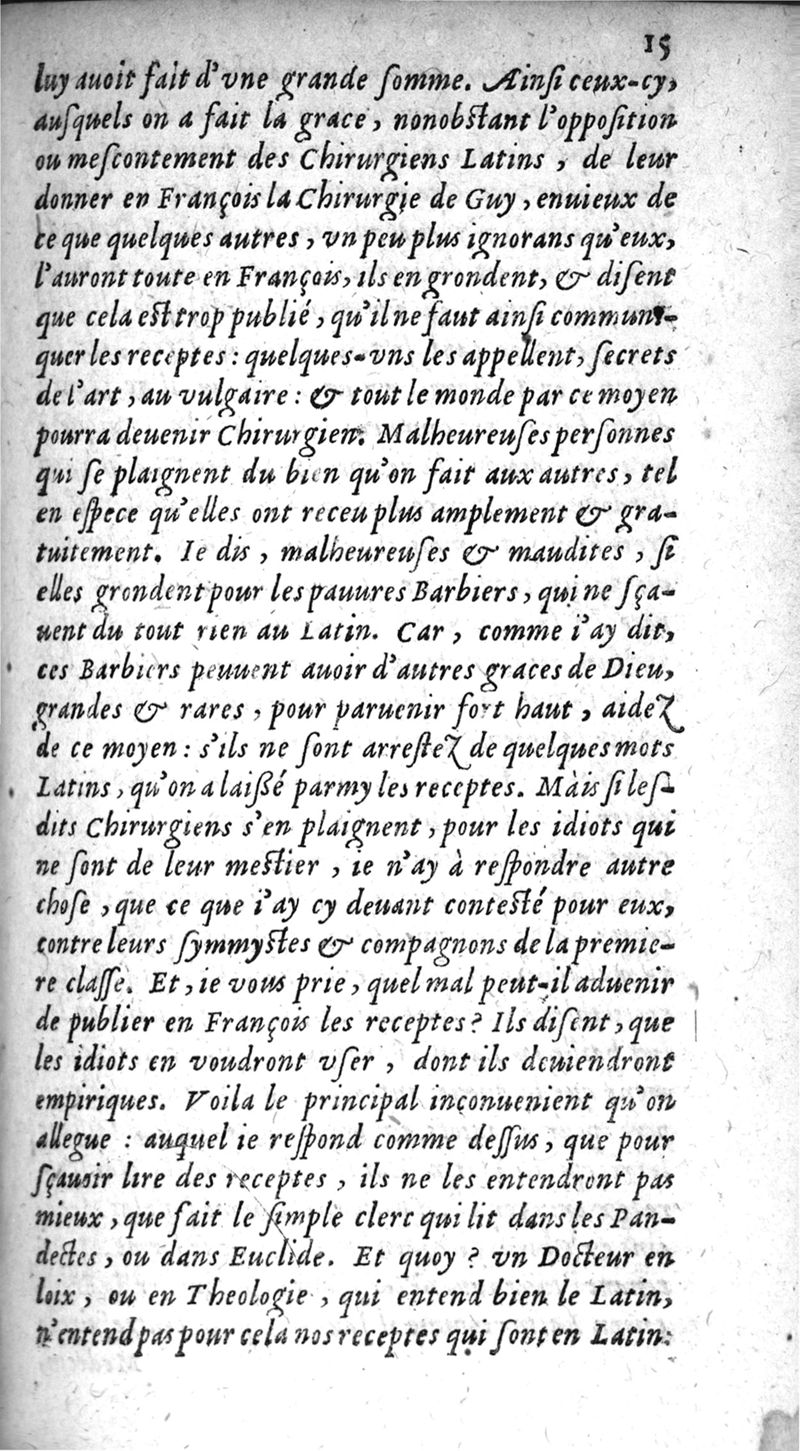 15
luy auoit fait d'vne grande ſomme. Ainſi ceux-cy,
auſquels on a fait la grace, nonobſtant l'oppoſition
ou meſcontement des Chirurgiens Latins, de leur
donner en François la Chirurgie de Guy, enuieux de
ce que quelques autres, vn peu plus ignorans qu'eux,
l'auront toute en François, ils en grondent, & diſent
que cela eſt trop publié, qu'il ne faut ainſi communi-
quer les receptes: quelques-vns les appellent, ſecrets
de l'art, au vulgaire: & tout le monde par ce moyen
pourra deuenir Chirurgien. Malheureuſes perſonnes
qui ſe plaignent du bien qu'on fait aux autres, tel
en eſpece qu'elles ont receu plus amplement & gra-
tuitement. Ie dis, malheureuſes & maudites, ſi
elles grondent pour les pauures Barbiers, qui ne ſça-
uent du tout rien au Latin. Car, comme i'ay dit,
ces Barbiers peuuent auoir d'autres graces de Dieu,
grandes & rares, pour paruenir fort haut, aidez
de ce moyen: s'ils ne ſont arreſtez de quelques mots
Latins, qu'on a laiſſé parmy les receptes. Mais ſi leſ-
dits Chirurgiens s'en plaignent, pour les idiots qui
ne ſont de leur meſtier, ie n'ay à reſpondre autre
choſe, que ce que i'ay cy deuant conteſté pour eux,
contre leurs ſymmyſtes & compagnons de la premie-
re claſſe. Et, ie vous prie, quel mal peut-il aduenir
de publier en François les receptes? Ils diſent, que
les idiots en voudront vſer, dont ils deuiendront
empiriques. Voila le principal inconuenient qu'on
allegue: auquel ie reſpond comme deſſus, que pour
ſçauoir lire des receptes, ils ne les entendront pas
mieux, que fait le ſimple clerc qui lit dans les Pan-
dectes, ou dans Euclide. Et quoy? vn Docteur en
loix, ou en Theologie, qui entend bien le Latin,
n'entend pas pour cela nos receptes qui ſont en Latin: